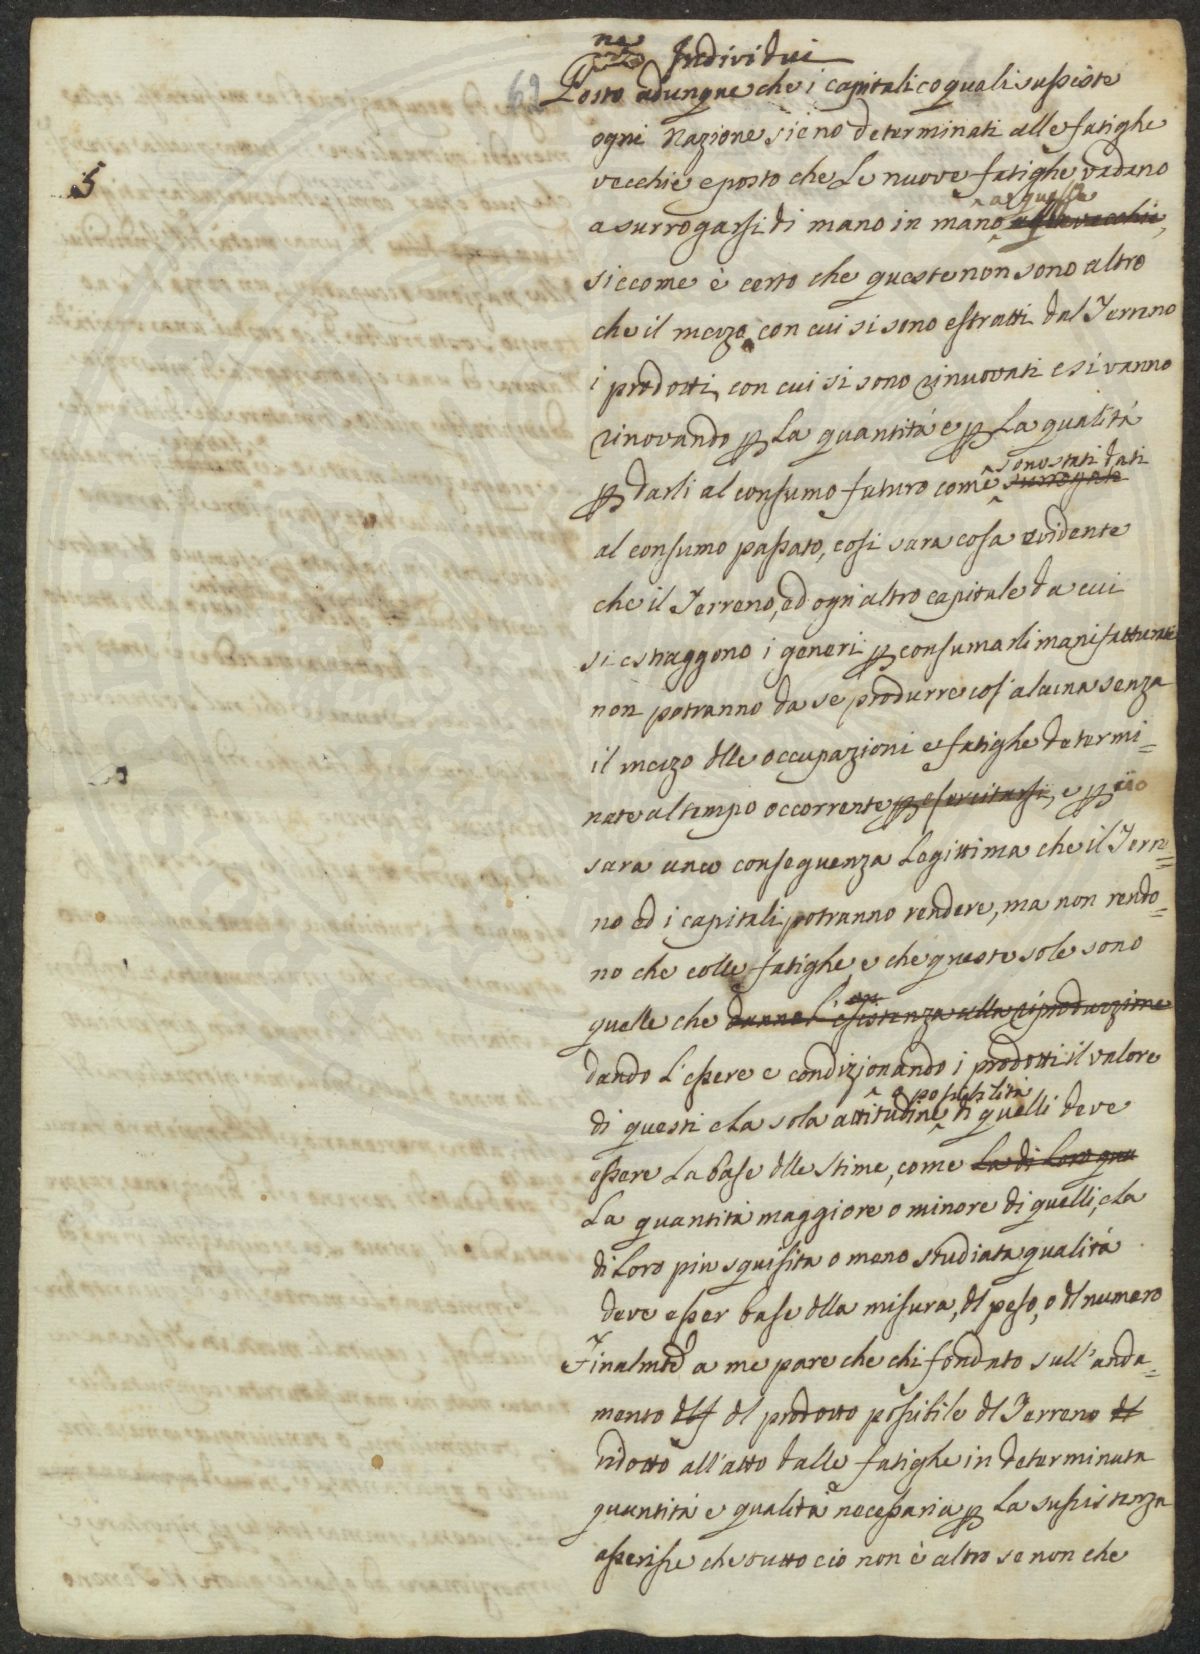 ne Individui
62
Posto adunque che i capitali co quali sussiste
ogni Nazione sieno determinati alle fatighe
vecchie e posto che Le nuove fatighe vadano
5
a quelle
a surrogarsi di mano in mano alle vecchie,
siccome è certo che queste non sono altro
che il mezo con cui si sono estratti dal Terreno
i prodotti, con cui si sono rinuovati e si vanno
rinovando p La quantitá e p La qualitá
sono stati dati
p darli al consumo futuro come surrogate
al consumo passato, cosi sara cosa evidente
che il Terreno, ed ogn'altro capitale da cui
si estraggono i generi p consumarli manifatturati
non potranno da se produrre cos' alcuna senza
il mezo dlle occupazioni e fatighe determi=
nate al tempo occorrente p esercitarsi, e p ciò
sara una conseguenza Legittima che il Terre=
no ed i capitali potranno rendere, ma non rendo=
no che colle fatighe e che queste sole sono
quelle che danno l'esistenza alla riproduzione
dando L'essere e condizionando i prodotti il valore
o possibilità
di questi e La sola attitudine di quelli deve
essere La base dlle stime, come La di Loro qua
La quantitá maggiore o minore di quelli, e La
di Loro piu squisita o meno studiata qualitá
deve esser base dlla misura, dl peso, o dl numero
Finalmte a me pare che chi fondato sull'anda=
mento dl prodotto possibile dl Terreno dl
ridotto all'atto dalle fatighe in determinata
quantitá e qualitá necessaria p La sussistenza
asserisse che tutto ciò non è altro se non che